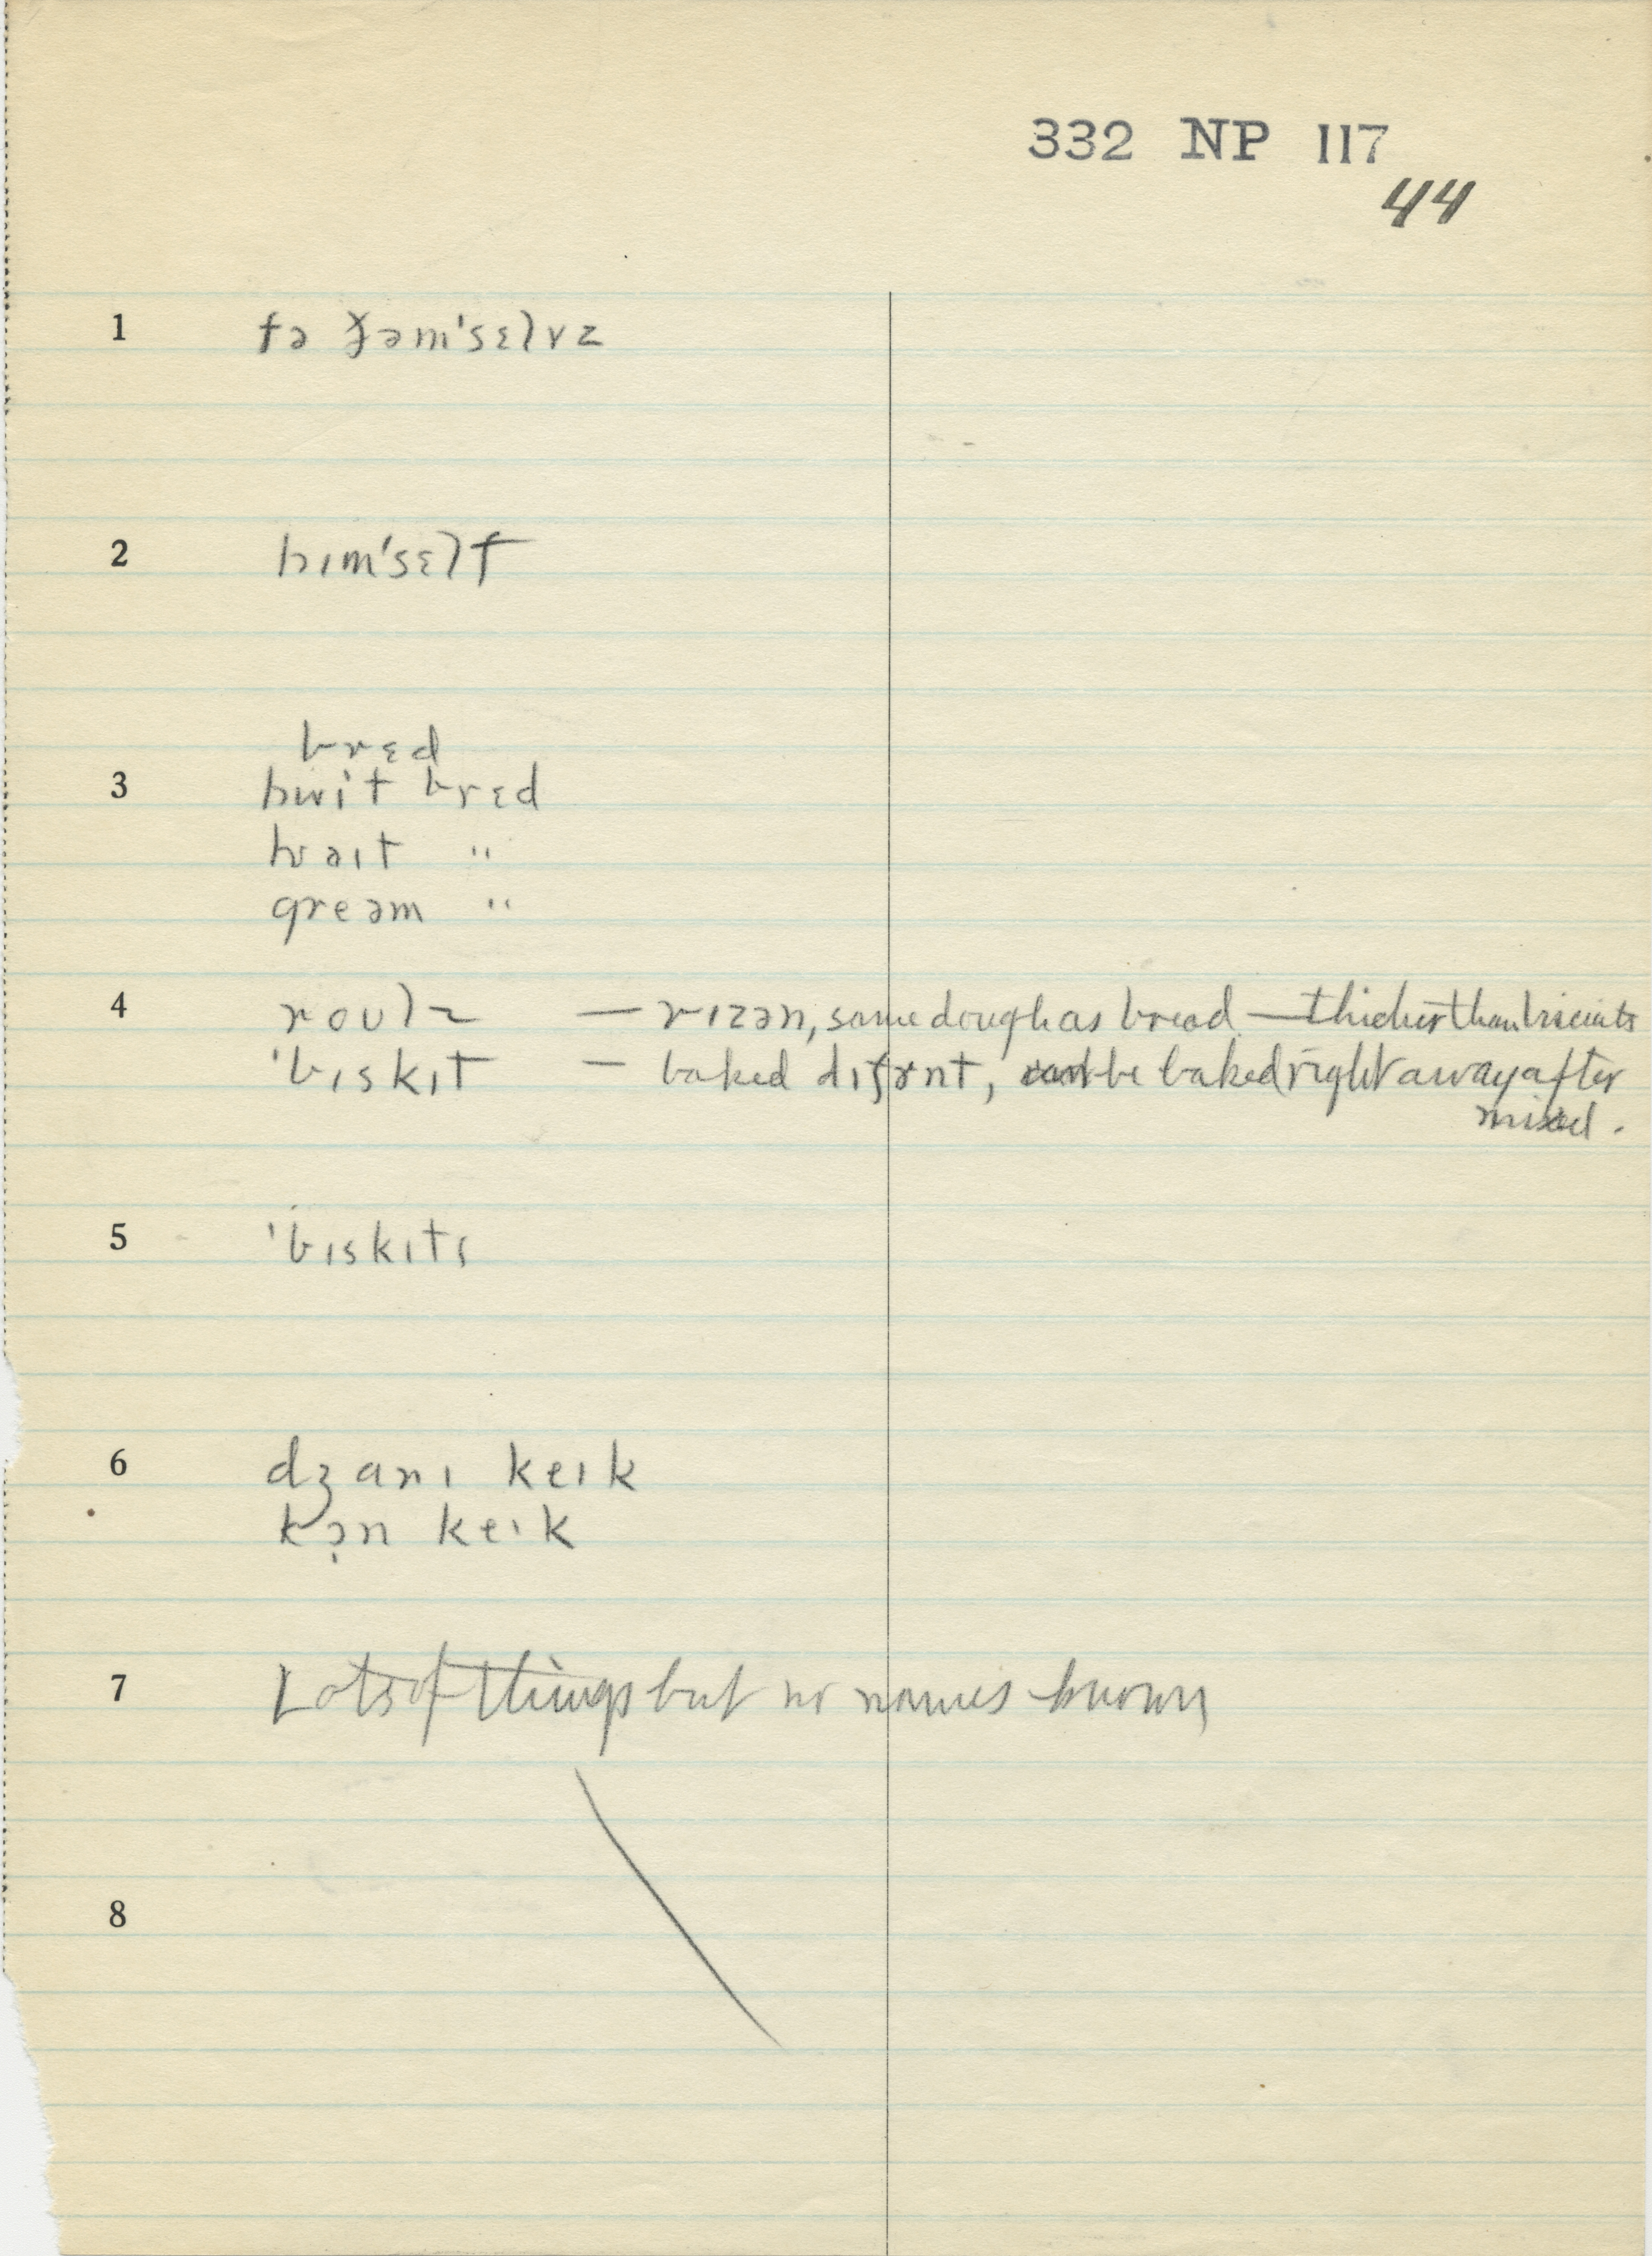 332 NP 117
44
1 fə ðəm'sɛlvz
2 hɪm'sɛlf
brɛd
3 hwit brɛd
hwaɪt "
greəm "
4 roʊlz — rɪzən, same dough as bread — thicker than biscuits
'bɪskɪt — baked dɪfrnt, be baked right away after
mixed.
5 'bɪskɪts
6 dʒanɪ keɪk
kɔ̣n keɪk
7 Lots of things but no names known
8